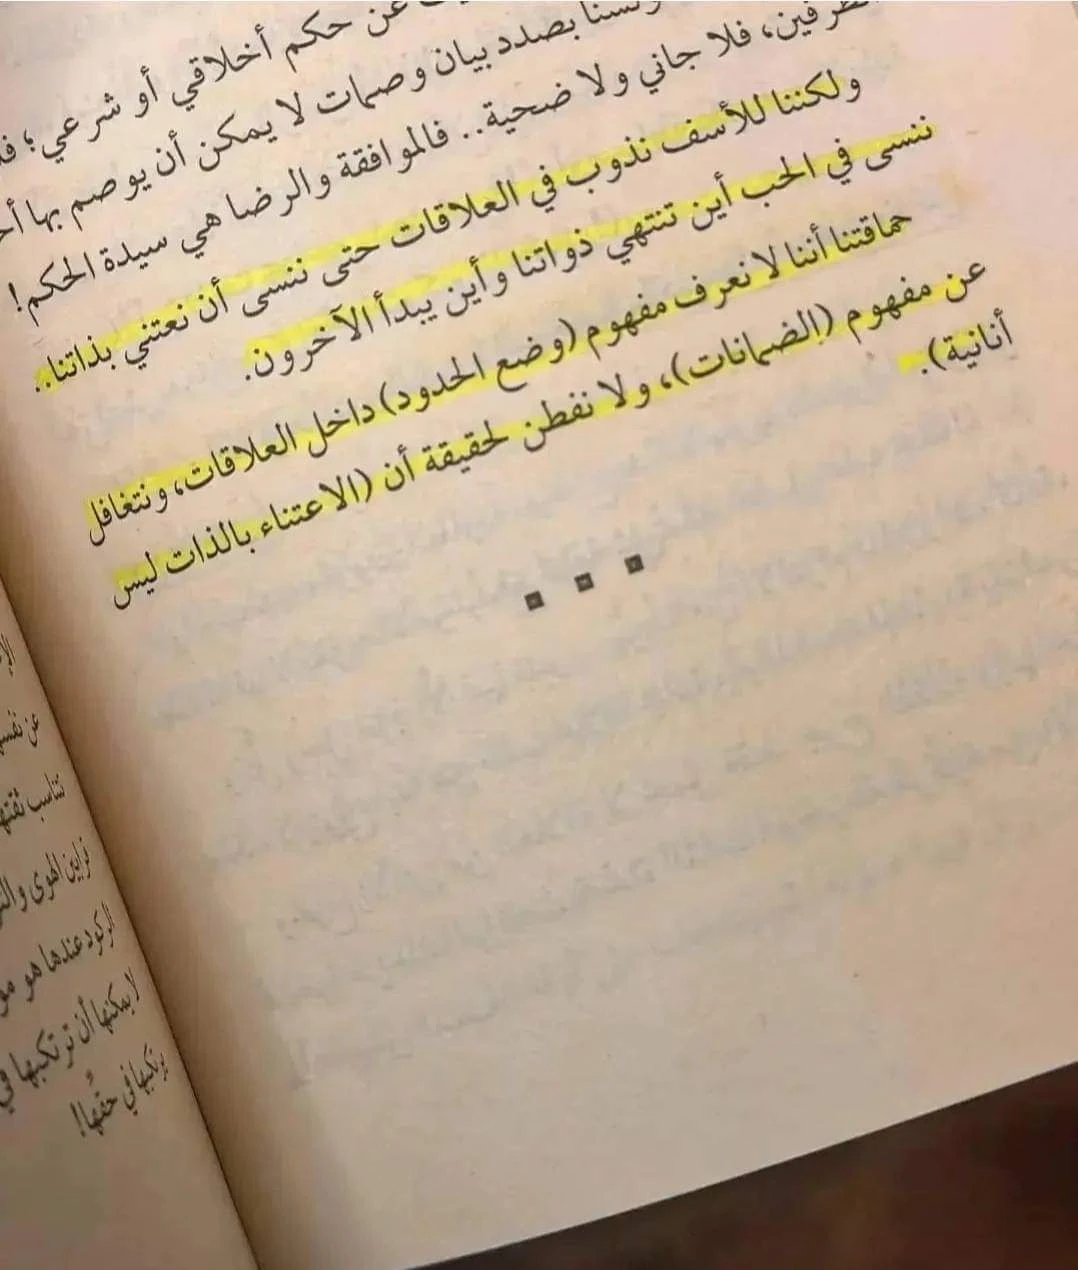 عن حكم أخلاقي أو شرعي؛
ولسنا بصدد بيان وصمات لا يمكن أن يوصم بها
فلا جاني ولا ضحية.. فالموافقة والرضا هي سيدة الحكم!
ولكننا للأسف نذوب في العلاقات حتى ننسى أن نعتني بذاتنا..
ننسى في الحب أين تنتهي ذواتنا وأين يبدأ الآخرون.
حماقتنا أننا لا نعرف مفهوم (وضع الحدود) داخل العلاقات، ونتغافل
عن مفهوم (الضمانات)، ولا نفطن لحقيقة أن (الاعتناء بالذات ليس
أنانية).
عن نفسها
تناسب ثقتها
قرابين الهوى
الركود عندها هو
لا يمكنها أن ترتكبها في
يرتكبها في حقها!